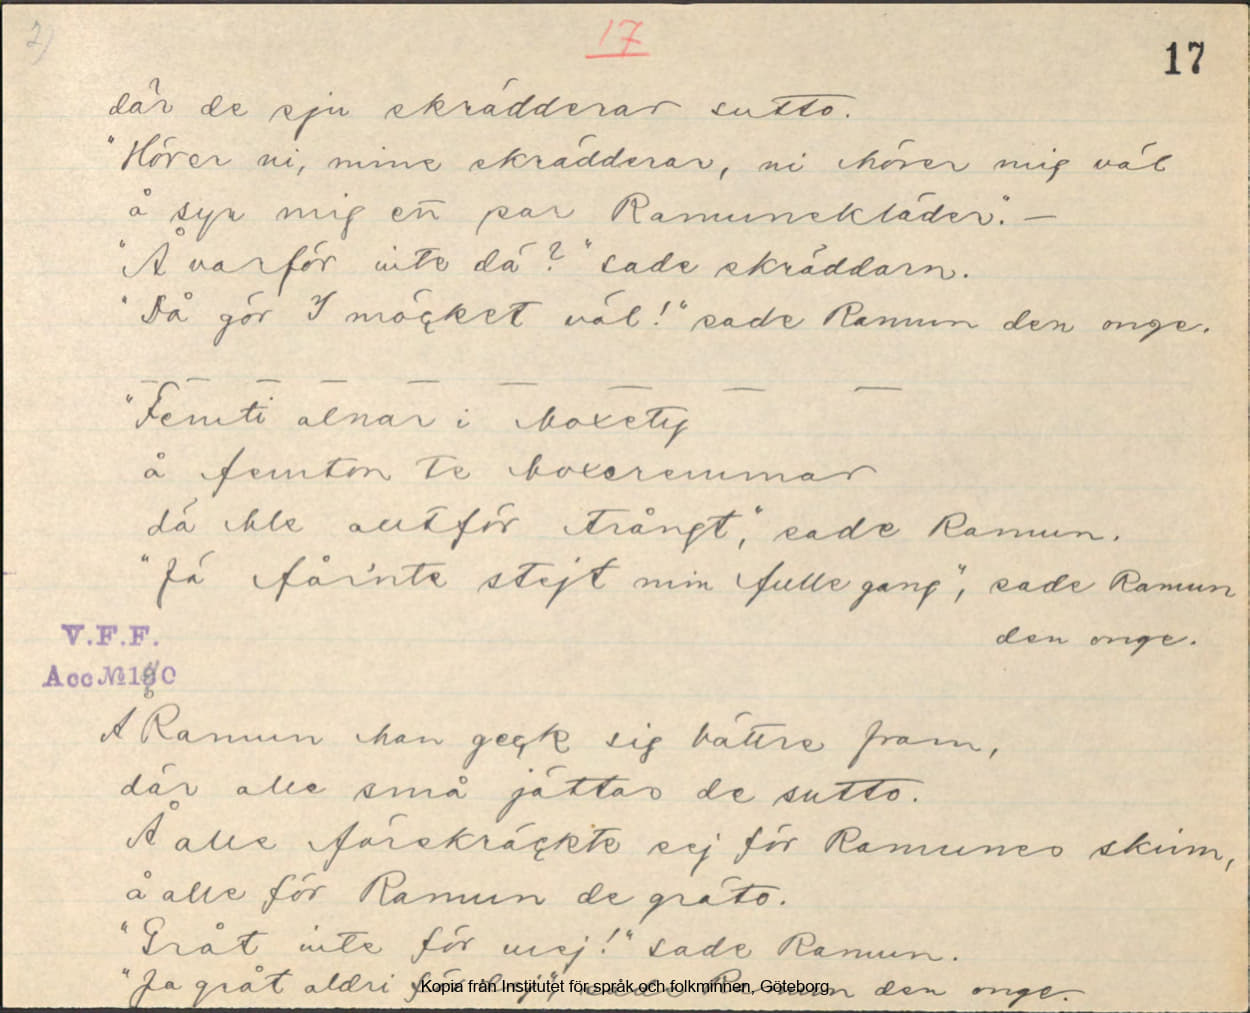 2) 17 17
där de sju skrädderar sutto.
"Hörer ni, mine skrädderar, ni hörer mig väl
å syr mig en par Ramunskläder". —
"Å varför inte dá?" sade skräddarn.
"Då gör I möcket väl!" sade Ramun den onge.
— — — — — — — — —
"Femti alnar i boxetyg
å femton te boxeremmar
dá ble alltför trångt," sade Ramun.
"Já får'nte stejt min fulle gang", sade Ramun
den onge.
V.F.F.
Acc № 180
Å Ramun han geck sig bättre fram,
där alle små jättar de sutto.
Å alle förskräckte sej för Ramunes skinn,
å alle för Ramun de gráto.
"Gråt inte för mej!" sade Ramun.
"Ja gråt aldri för dej", sade Ramun den onge.
Kopia från Institutet för språk och folkminnen, Göteborg